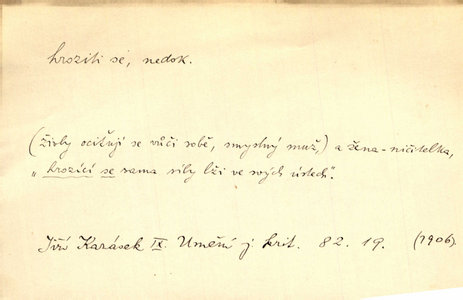 hroziti se, nedok.
(živly ocitují se vůči sobě, smyslný muž,) a žena-ničitelka,
„hrozící se sama síly lži ve svých ústech".
Jiří Karásek IX. Umění j. krit. 82. 19. (1906).